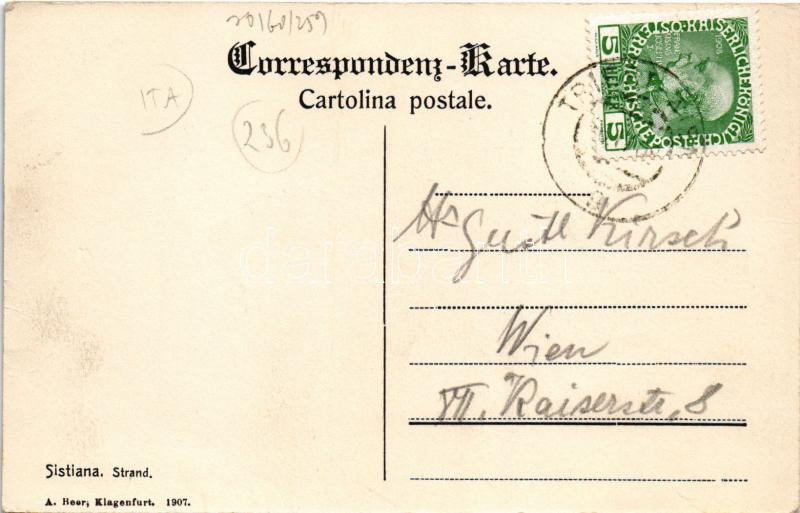 20160/259
Correspondenz-Karte.
Cartolina postale.
ITA
236
KAISERLICHEKÖNIGLICHE
ÖSTERREICHISCHE POST
1908
5 HELLER 5
Hr Gustl Kirsch
Wien
VII. Kaiserstr, 8
darabanth
Sistiana. Strand.
A. Beer, Klagenfurt. 1907.